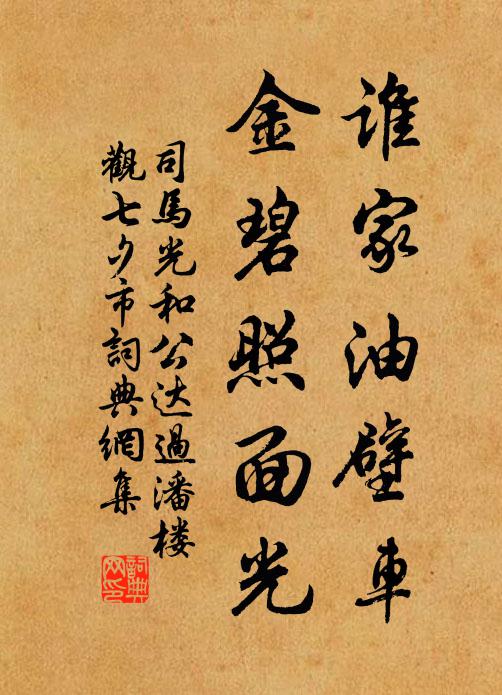 谁家油壁車
金碧照面光
司馬光和公达過潘楼
觀七夕市詞典網集
詞典网印